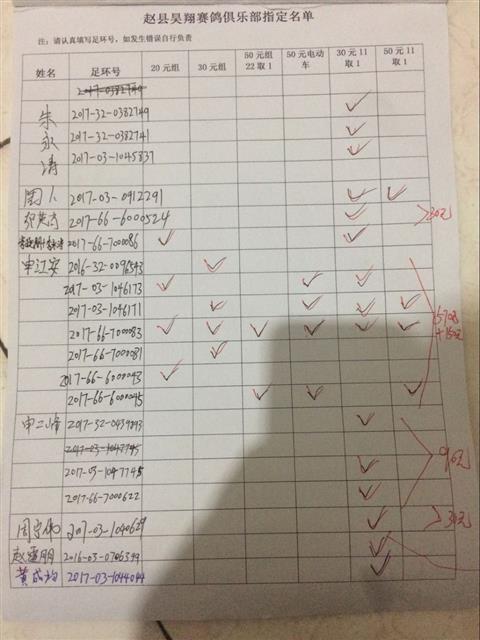 赵县昊翔赛鸽俱乐部指定名单
注：请认真填写足环号，如发生错误自行负责
姓名 足环号 20元组 30元组 50元组22取1 50元电动车 30元11取1 50元11取1
2017-0382749
朱永涛 2017-32-0382749 ✓
2017-32-0382741 ✓
2017-03-1045837 ✓
2017-03-0912291 ✓ ✓
2017-66-6000524 ✓ 30元
2017-66-7000086 ✓ ✓
申江安 2016-32-0096543 ✓
2017-03-1046173 ✓ ✓ ✓
2017-03-1046171 ✓ ✓ ✓ ✓
2017-66-7000083 ✓ ✓ ✓ ✓ ✓ ✓
2017-66-7000081 ✓
2017-66-6000043 ✓
2017-66-6000045 ✓ ✓ ✓
申二峰 2017-32-0439893 ✓
2017-03-1047745
2017-03-1047745 ✓ 90元
2017-66-7000622 ✓
2017-03-1040629 ✓ 30元
赵 朋 2016-03-0706399 ✓
黄成均 2017-03-1044044 ✓